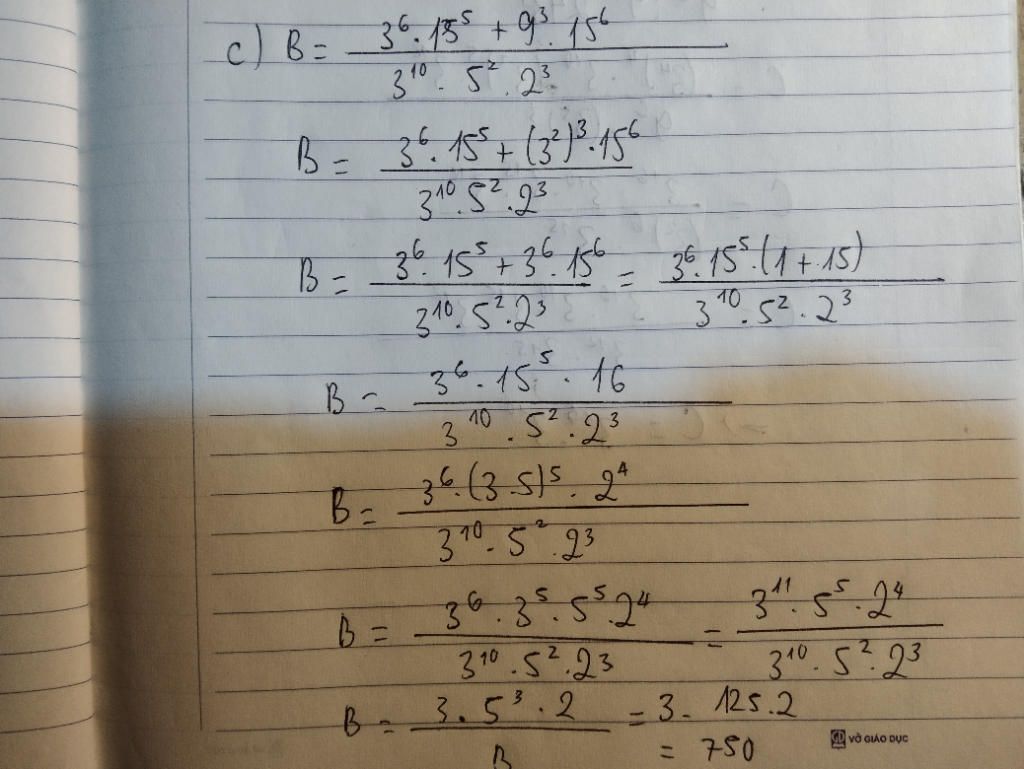 c) B = (3⁶ · 15⁵ + 9³ · 15⁶) / (3¹⁰ · 5² · 2³)
B = (3⁶ · 15⁵ + (3²)³ · 15⁶) / (3¹⁰ · 5² · 2³)
B = (3⁶ · 15⁵ + 3⁶ · 15⁶) / (3¹⁰ · 5² · 2³) = (3⁶ · 15⁵ · (1 + 15)) / (3¹⁰ · 5² · 2³)
B = (3⁶ · 15⁵ · 16) / (3¹⁰ · 5² · 2³)
B = (3⁶ · (3 · 5)⁵ · 2⁴) / (3¹⁰ · 5² · 2³)
B = (3⁶ · 3⁵ · 5⁵ · 2⁴) / (3¹⁰ · 5² · 2³) = (3¹¹ · 5⁵ · 2⁴) / (3¹⁰ · 5² · 2³)
B = (3 · 5³ · 2) / = 3 · 125 · 2
= 750
VỞ GIÁO DỤC